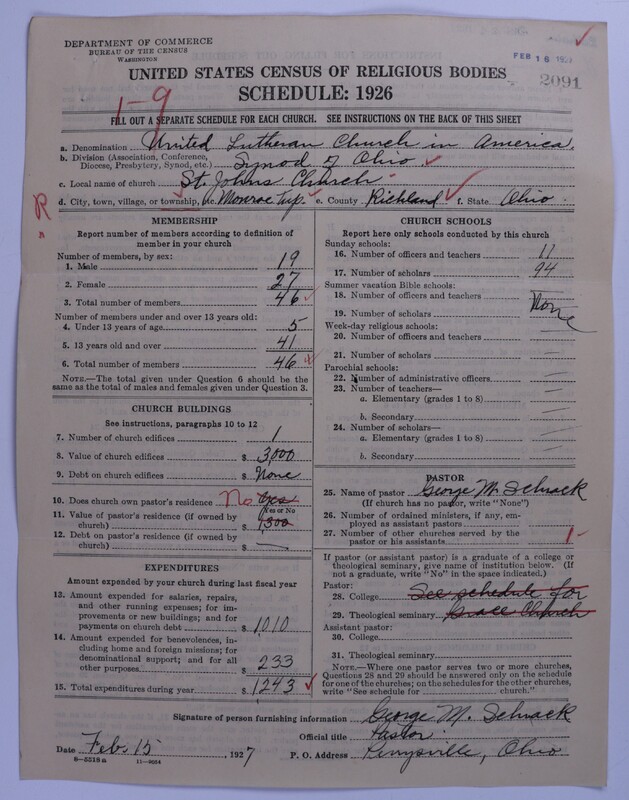 DEPARTMENT OF COMMERCE
BUREAU OF THE CENSUS
WASHINGTON
FEB 16 1927
2091
UNITED STATES CENSUS OF RELIGIOUS BODIES
SCHEDULE: 1926
1-9
FILL OUT A SEPARATE SCHEDULE FOR EACH CHURCH. SEE INSTRUCTIONS ON THE BACK OF THIS SHEET
a. Denomination United Lutheran Church in America.
b. Division (Association, Conference, Diocese, Presbytery, Synod, etc.) Synod of Ohio
c. Local name of church St. Johns Church
d. City, town, village, or township, Monroe Twp. e. County Richland f. State Ohio
R
MEMBERSHIP
Report number of members according to definition of member in your church
Number of members, by sex:
1. Male 19
2. Female 27
3. Total number of members 46
Number of members under and over 13 years old:
4. Under 13 years of age 5
5. 13 years old and over 41
6. Total number of members 46
NOTE.—The total given under Question 6 should be the same as the total of males and females given under Question 3.
CHURCH BUILDINGS
See instructions, paragraphs 10 to 12
7. Number of church edifices 1
8. Value of church edifices $ 3,000
9. Debt on church edifices $ None
10. Does church own pastor's residence No Yes
Yes or No
11. Value of pastor's residence (if owned by church) $ 1,300
12. Debt on pastor's residence (if owned by church) $ —
EXPENDITURES
Amount expended by your church during last fiscal year
13. Amount expended for salaries, repairs, and other running expenses; for improvements or new buildings; and for payments on church debt $ 1,010
14. Amount expended for benevolences, including home and foreign missions; for denominational support; and for all other purposes $ 233
15. Total expenditures during year $ 1243
CHURCH SCHOOLS
Report here only schools conducted by this church
Sunday schools:
16. Number of officers and teachers 11
17. Number of scholars 94
Summer vacation Bible schools:
18. Number of officers and teachers
19. Number of scholars None
Week-day religious schools:
20. Number of officers and teachers —
21. Number of scholars —
Parochial schools:
22. Number of administrative officers —
23. Number of teachers—
a. Elementary (grades 1 to 8) —
b. Secondary —
24. Number of scholars—
a. Elementary (grades 1 to 8) —
b. Secondary —
PASTOR
25. Name of pastor George M. Schrack
(If church has no pastor, write "None")
26. Number of ordained ministers, if any, employed as assistant pastors
27. Number of other churches served by the pastor or his assistants 1-
If pastor (or assistant pastor) is a graduate of a college or theological seminary, give name of institution below. (If not a graduate, write "No" in the space indicated.)
Pastor:
28. College See schedule for
29. Theological seminary Grace Church
Assistant pastor:
30. College
31. Theological seminary
NOTE.—Where one pastor serves two or more churches, Questions 28 and 29 should be answered only on the schedule for one of the churches; on the schedules for the other churches, write "See schedule for ______ church."
Signature of person furnishing information George M. Schrack
Official title Pastor
Date Feb. 15, 1927
P. O. Address Perrysville, Ohio
8—5518a 11—9034